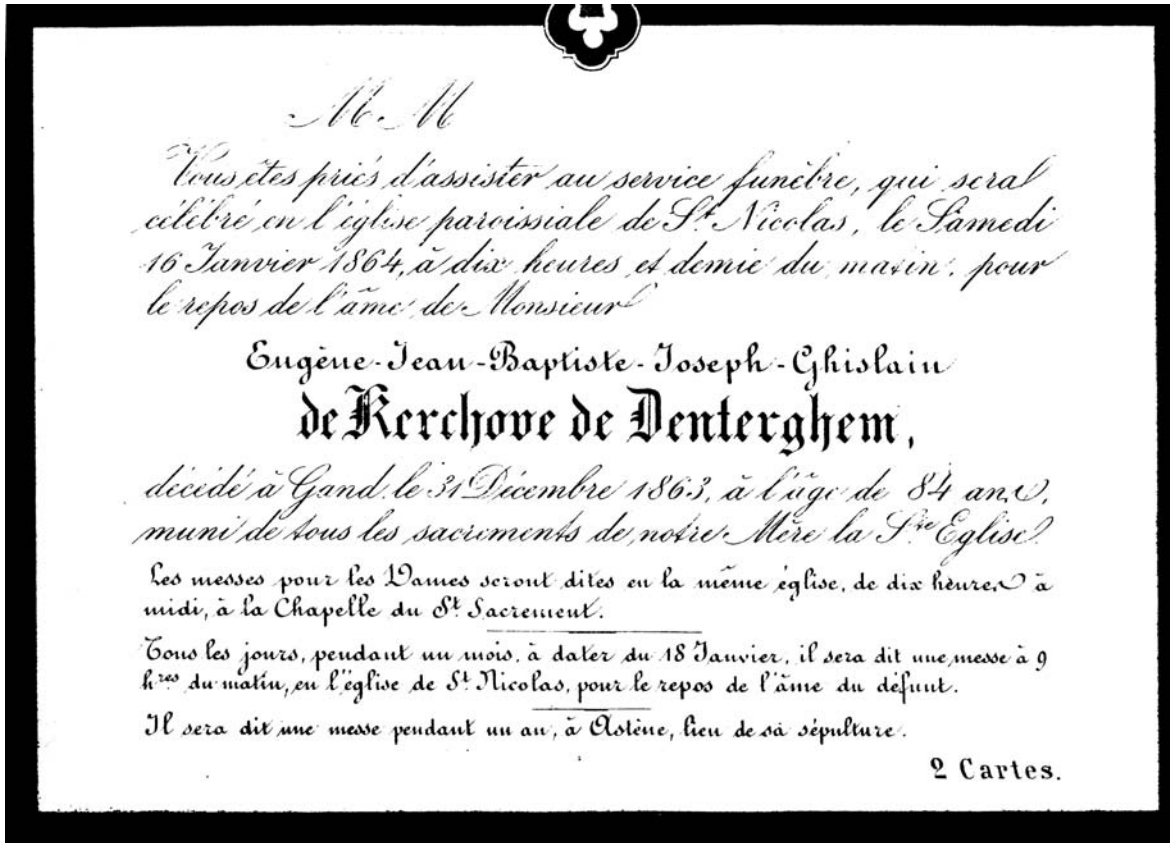 M. M
Vous êtes priés d'assister au service funèbre, qui sera
célébré en l'église paroissiale de St. Nicolas, le Samedi
16 Janvier 1864, à dix heures et demie du matin, pour
le repos de l'âme de Monsieur
Eugène-Jean-Baptiste-Joseph-Ghislain
de Kerchove de Denterghem,
décédé à Gand le 31 Décembre 1863, à l'âge de 84 ans,
muni de tous les sacrements de notre Mère la Ste Eglise.
Les messes pour les Dames seront dites en la même église, de dix heures à
midi, à la Chapelle du St. Sacrement.
Tous les jours, pendant un mois, à dater du 18 Janvier, il sera dit une messe à 9
hres du matin, en l'église de St. Nicolas, pour le repos de l'âme du défunt.
Il sera dit une messe pendant un an, à Astène, lieu de sa sépulture.
2 Cartes.